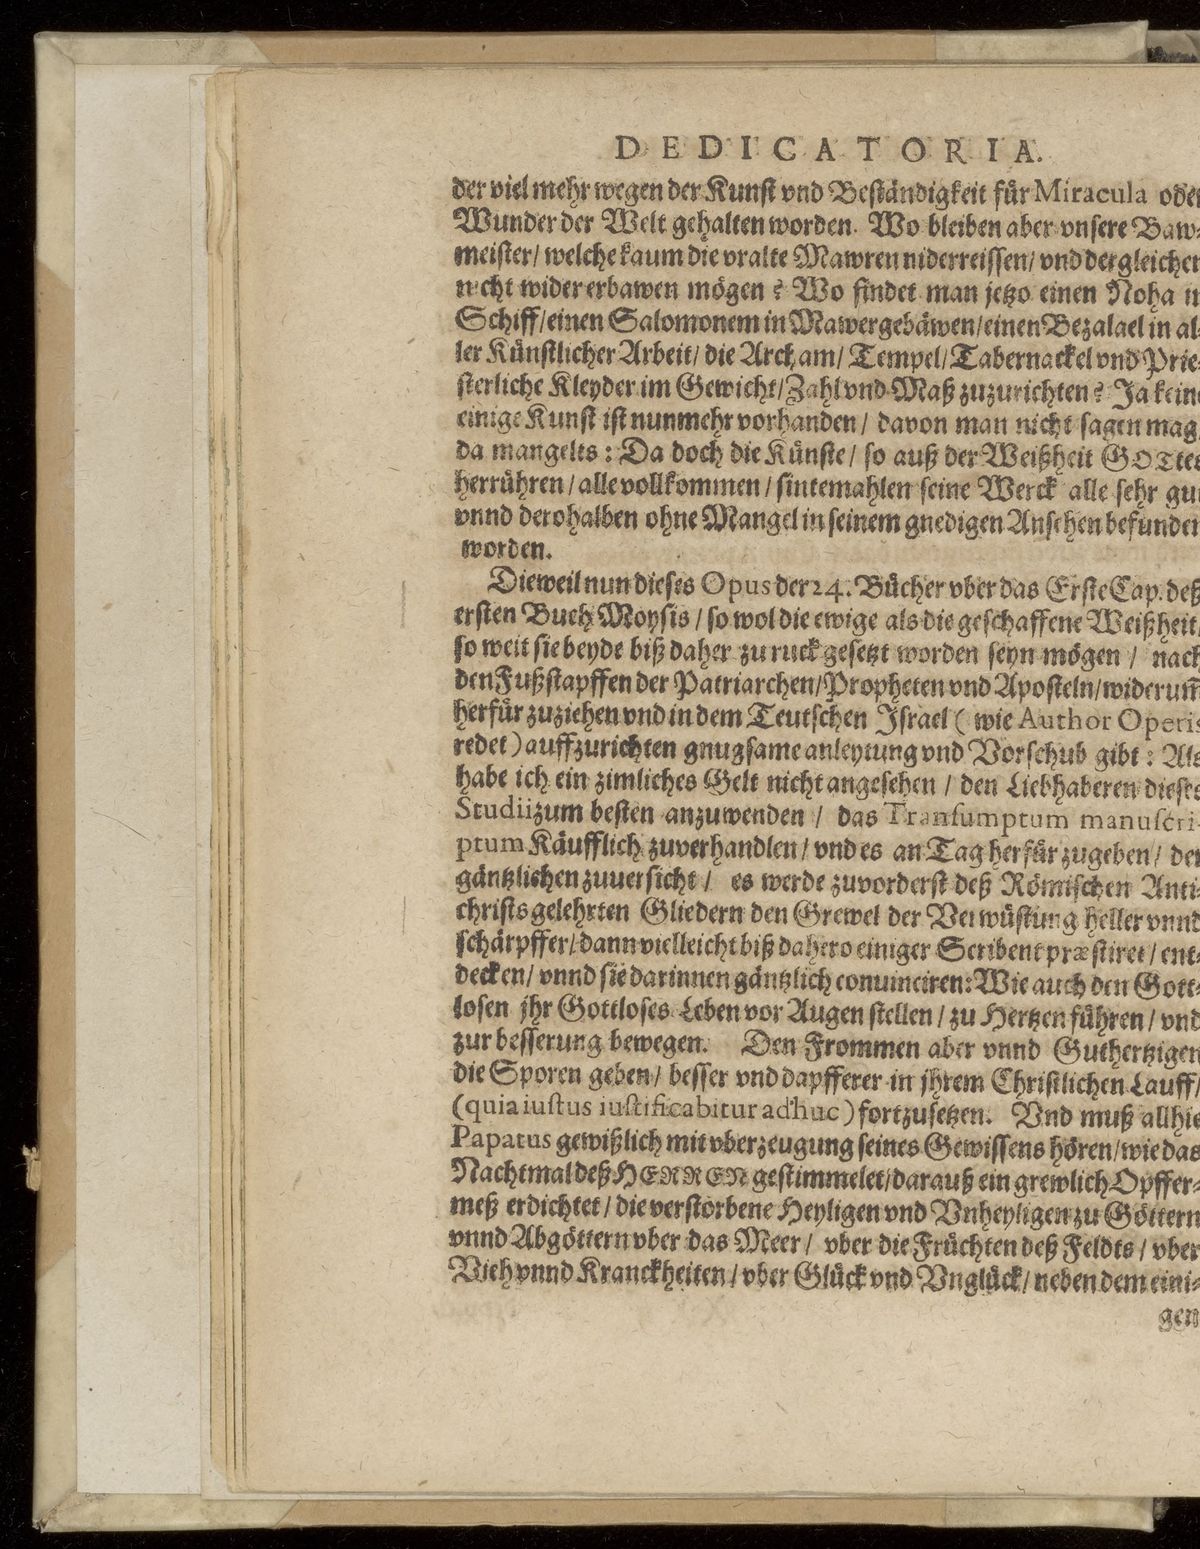 DEDICATORIA.
der viel mehr wegen der Kunst vnd Beständigkeit für Miracula oder
Wunder der Welt gehalten worden. Wo bleiben aber vnsere Baw-
meister/ welche kaum die vralte Mawren niderreissen/ vnd dergleichen
nicht wider erbawen mögen? Wo findet man jetzo einen Noha in
Schiff/einen Salomonem in Mawergebäwen/einen Bezalael in al-
ler Künstlicher Arbeit/ die Archam/ Tempel/Tabernackel vnd Prie-
sterliche Kleyder im Gewicht/Zahl vnd Maß zuzurichten? Ja keine
einige Kunst ist nunmehr vorhanden/ davon man nicht sagen mag
da mangelts: Da doch die Künste/ so auß der Weißheit GOttes
herrühren/ alle vollkommen/ sintemahlen seine Werck alle sehr gut
vnnd derohalben ohne Mangel in seinem gnedigen Ansehen befunden
worden.
Dieweil nun dieses Opus der 24. Bücher vber das Erste Cap. deß
ersten Buch Moysis/ so wol die ewige als die geschaffene Weißheit/
so weit sie beyde biß daher zu ruck gesetzt worden seyn mögen/ nach
den Fußstapffen der Patriarchen/Propheten vnd Aposteln/widerum̃
herfür zuziehen vnd in dem Teutschen Israel (wie Author Operis
redet) auffzurichten gnugsame anleytung vnd Vorschub gibt: Als
habe ich ein zimliches Gelt nicht angesehen/ den Liebhaberen dieses
Studii zum besten anzuwenden/ das Transumptum manuscri-
ptum Käufflich zuverhandlen/ vnd es an Tag herfür zugeben/ der
gäntzlichen zuuersicht/ es werde zuvorderst deß Römischen Anti-
christs gelehrten Gliedern den Grewel der Verwüstung heller vnnd
schärpffer/ dann vielleicht biß dahero einiger Scribent præstiret/ ent-
decken/ vnnd sie darinnen gäntzlich conuinciren: Wie auch den Gott-
losen jhr Gottloses Leben vor Augen stellen/ zu Hertzen führen/ vnd
zur besserung bewegen. Den Frommen aber vnnd Guthertzigen
die Sporen geben/ besser vnd dapfferer in jhrem Christlichen Lauff/
(quia iustus iustificabitur adhuc) fortzusetzen. Vnd muß allhie
Papatus gewißlich mit vberzeugung seines Gewissens hören/wie das
Nachtmal deß HERREN gestimmelet/darauß ein grewlich Opffer-
meß erdichtet/ die verstorbene Heyligen vnd Vnheyligen zu Göttern
vnnd Abgöttern vber das Meer/ vber die Früchten deß Feldts/ vber
Vieh vnnd Kranckheiten/ vber Glück vnd Vnglück/ neben dem eini-
gen